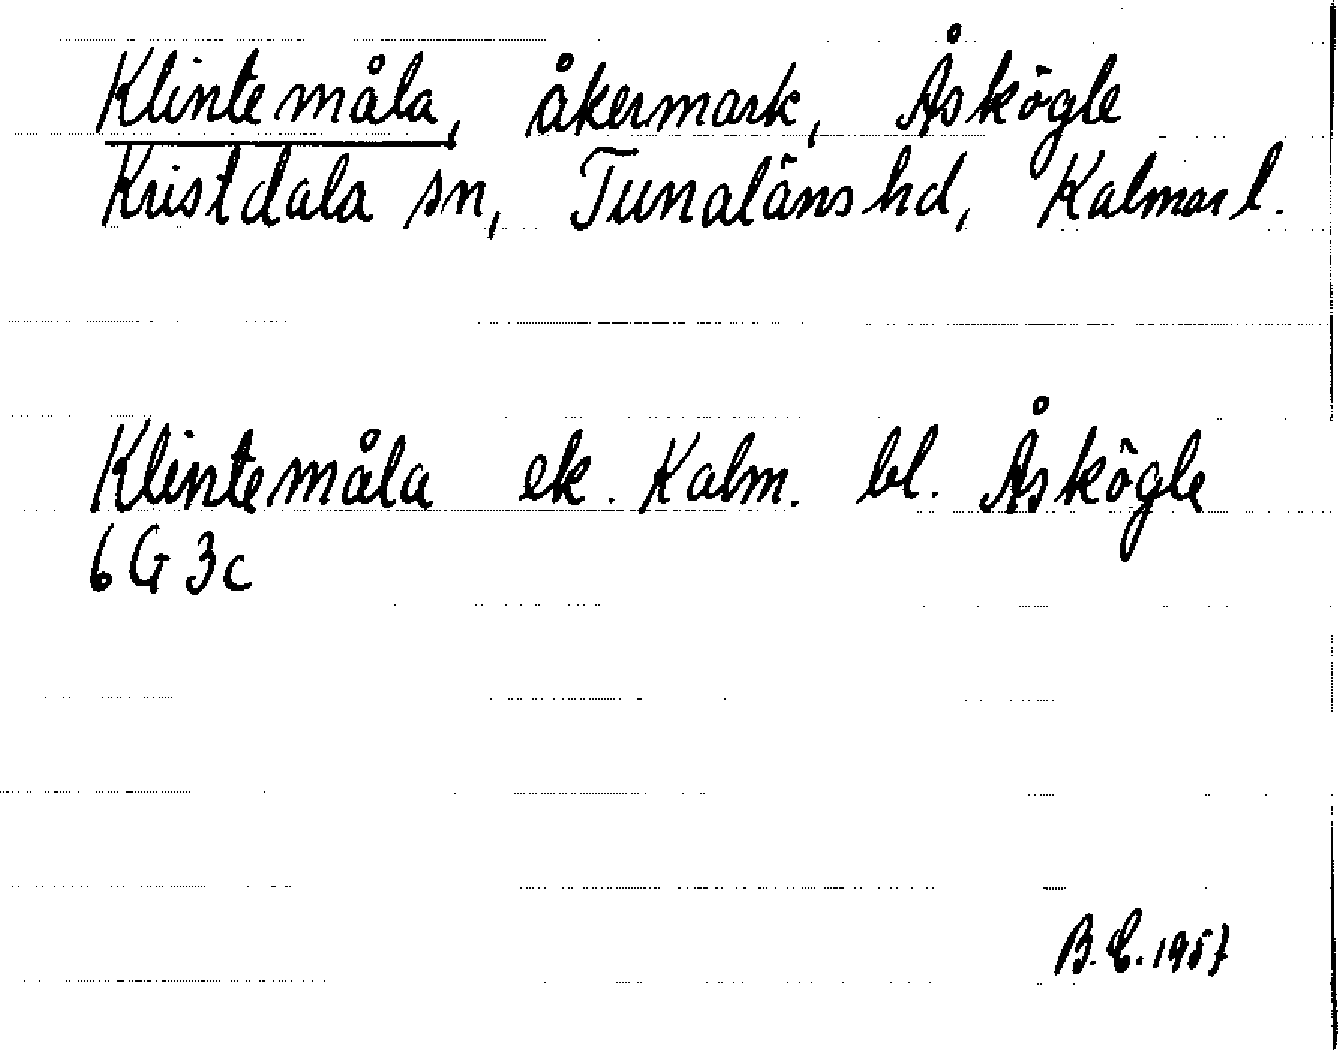 Klintemåla, åkermark, Åskögle
Kristdala sn, Tunaläns hd, Kalmar l.
Klintemåla ek. Kalm. bl. Åskögle
6G3c
B.E. 1957